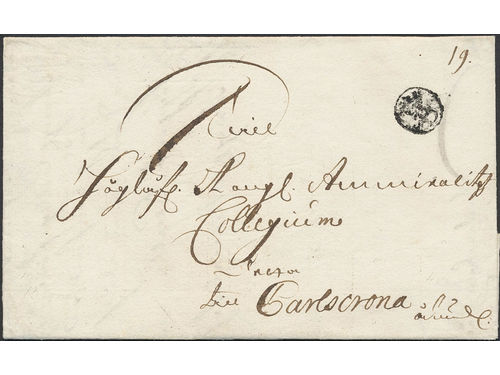 19.
Till
Höglofl. Kongl. Ammiralitz
Collegium
till Carlscrona